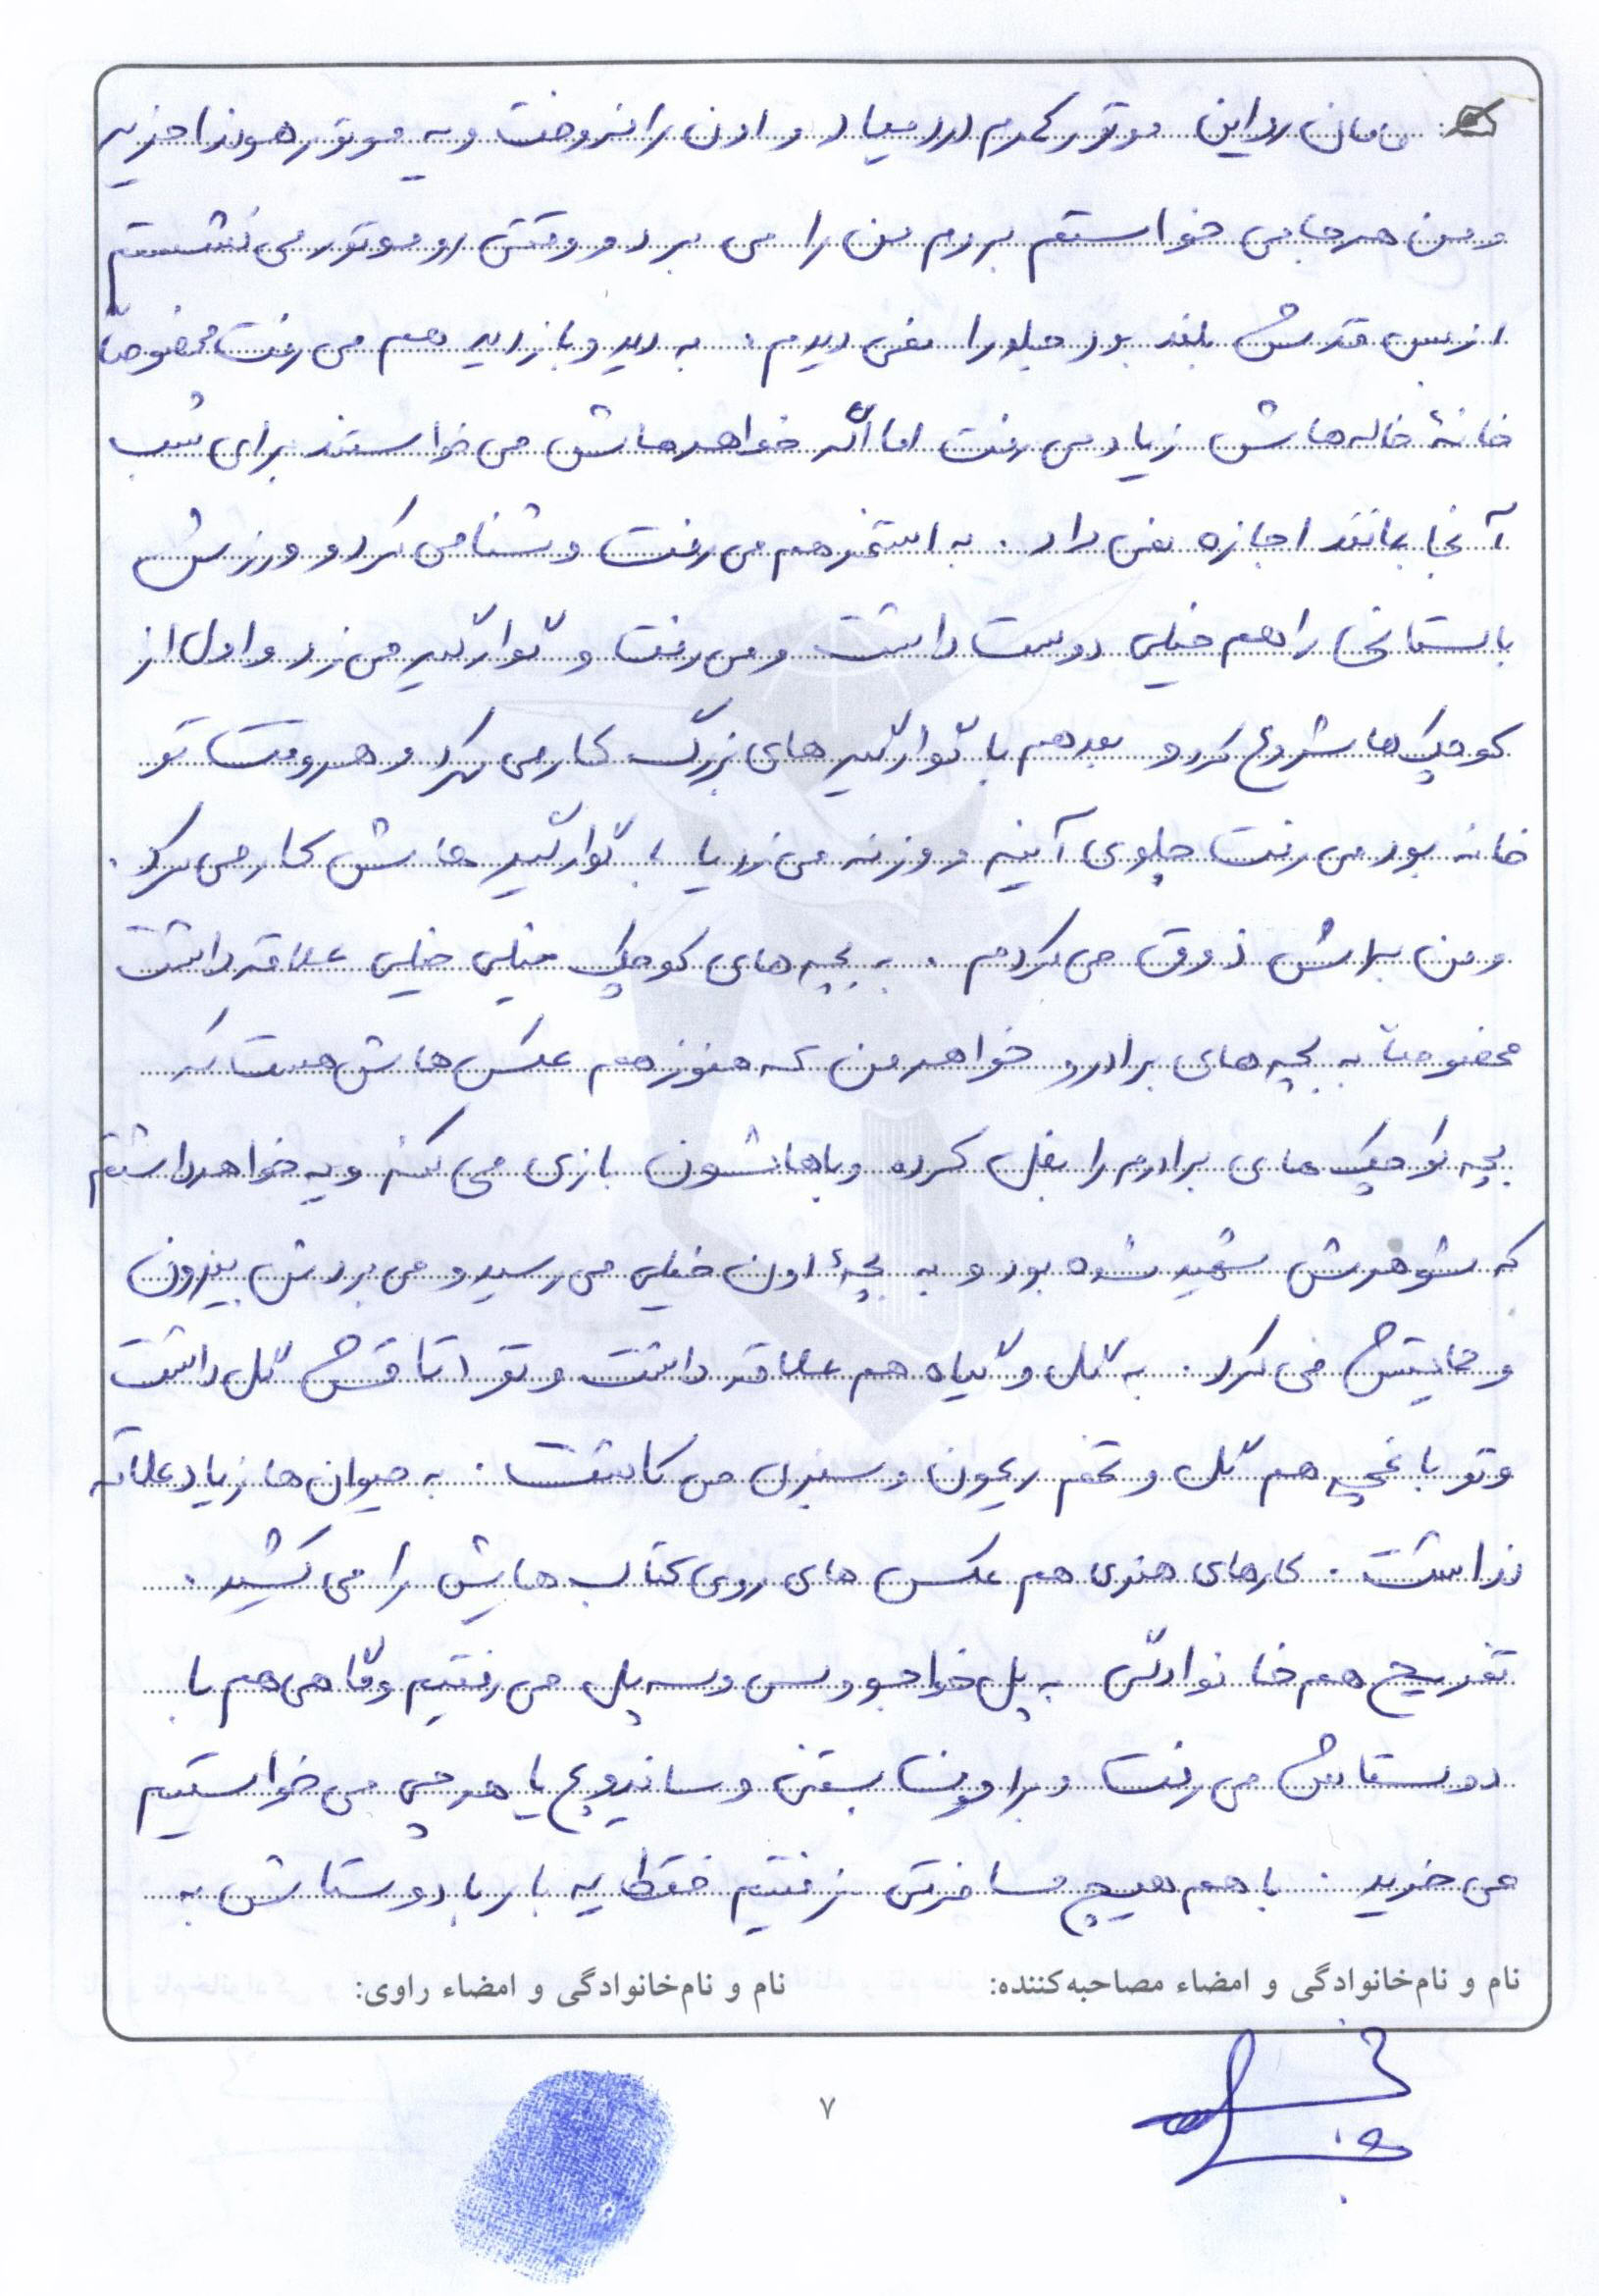 مامان رو این موتور کمرم درد میاد و اون را فروخت و یه موتور هوندا خرید
و من هر جا می خواستم بردم من را می برد و وقتی رو موتور می نشستم
از بس قدش بلند بود جلو را نمی دیدم. به دید و بازدید هم می رفت مخصوصاً
خانهٔ خاله هاش زیاد می رفت اما اگه خواهرهاش می خواستند برای شب
آنجا بمانند اجازه نمی داد. به استخر هم می رفت و شنا می کرد و ورزش
باستانی را هم خیلی دوست داشت و می رفت و گوارگیر می زد و اول از
کوچک ها شروع کرد و بعد هم با گوارگیرهای بزرگ کار می کرد و هر وقت تو
خانه بود می رفت جلوی آینه و وزنه می زد یا با گوارگیر هاش کار می کرد.
و من براش ذوق می کردم. به بچه های کوچک خیلی خیلی علاقه داشت
مخصوصاً به بچه های برادر و خواهر من که هنوز هم عکس هاش هست که
بچه کوچیک های برادرم را بغل کرده و باهاشون بازی می کنه و یه خواهر داشتم
که شوهرش شهید شده بود و به بچهٔ اون خیلی می رسید و می بردش بیرون
و حمایتش می کرد. به گل و گیاه هم علاقه داشت و تو اتاقش گل داشت
و تو باغچه هم گل و تخم ریحون و سبزی می کاشت. به حیوان ها زیاد علاقه
نداشت. کارهای هنری هم عکس های روی کتاب هایش را می کشید.
تفریح هم خانوادگی به پل خواجو و سی و سه پل می رفتیم و گاهی هم با
دوستاش می رفت و برامون بستنی و ساندویچ یا هر چی می خواستیم
می خرید. با هم هیچ مسافرتی نرفتیم فقط یه بار با دوستاش به
نام و نام‌خانوادگی و امضاء مصاحبه‌کننده:
نام و نام‌خانوادگی و امضاء راوی:
۷